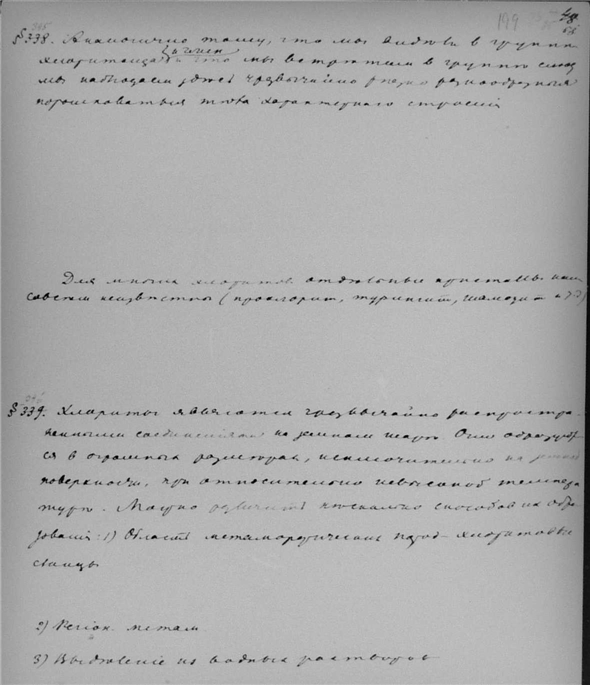 199
§338. Аналогично тому, что мы видѣли в группѣ
хлоритоида и что мы встрѣтим в группѣ слюд
мы наблюдаем здѣсь чрезвычайно рѣдко разнообразныя
характернаго строенія
Для многих хлоритов отдѣльные кристаллы нам
совсѣм неизвѣстны (прохлорит, турингит, шамозит и др.)
§339. Хлориты являются чрезвычайно распростра-
ненными соединеніями на земном шарѣ. Они образуют-
ся в огромных размѣрах, исключительно на земной
поверхности, при относительно невысокой темпера-
турѣ. Можно различить нѣсколько способов их обра-
зованія: 1) Область метаморфических пород - хлоритовые
сланцы
2) Регіон. метам.
3) Выдѣленіе из водных растворов